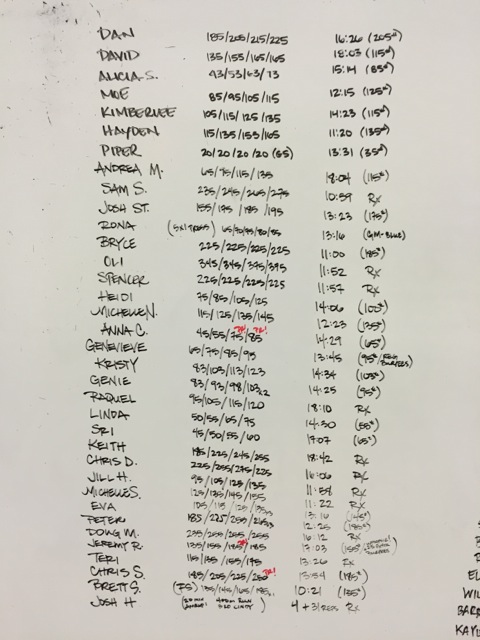 DAN 185/205/215/225 16:26 (205#)
DAVID 135/155/165/165 18:03 (115#)
ALICIA S. 43/53/63/73 15:14 (85#)
MOE 85/95/105/115 12:15 (125#)
KIMBERLEE 105/115/125/135 14:23 (115#)
HAYDEN 115/135/155/165 11:20 (135#)
PIPER 20/20/20/20 (65) 13:31 (35#)
ANDREA M. 65/95/115/135 18:04 (115#)
SAM S. 235/245/265/275 10:59 Rx
JOSH ST. 155/175/185/195 13:23 (175#)
RONA 65/70/75/80/85 13:16
BRYCE 225/225/225/225 11:00 (185#)
OLI 345/345/375/395 11:52 Rx
SPENCER 225/225/225/225 11:57 Rx
HEIDI 75/85/105/125 14:06 (100#)
MICHELLE N. 115/125/135/145 12:23 (135#)
ANNA C. 45/55/75/85 14:29 (65#)
GENEVIEVE 65/75/85/95 13:45 (95#
KRISTY 83/103/113/123 14:34 (103#)
GENIE 83/93/98/103x2 14:25 (95#)
RAQUEL 95/105/115/120 18:10 Rx
LINDA 50/55/65/75 14:30 (55#)
SRI 45/50/55/60 17:07 (65#)
KEITH 185/225/245/255 18:42 Rx
CHRIS D. 225/255/275/225 16:06 Rx
JILL H. 95/105/125/135 11:58 Rx
MICHELLE S. 125/135/145/155 11:22 Rx
EVA 105/115/125/135 13:16 (145#)
PETER 185/225/255/265 12:25 (185#)
DOUG M. 235/255/255/255 16:12 Rx
JEREMY R. 135/155/185/185 17:03 (155
TERI 115/135/155/175 13:26 Rx
CHRIS S. 185/205/225/250 PR! 13:54 (185#)
BRETT S. 135/145/165/185 10:21 (155#)
JOSH H 4 + 31 REPS Rx